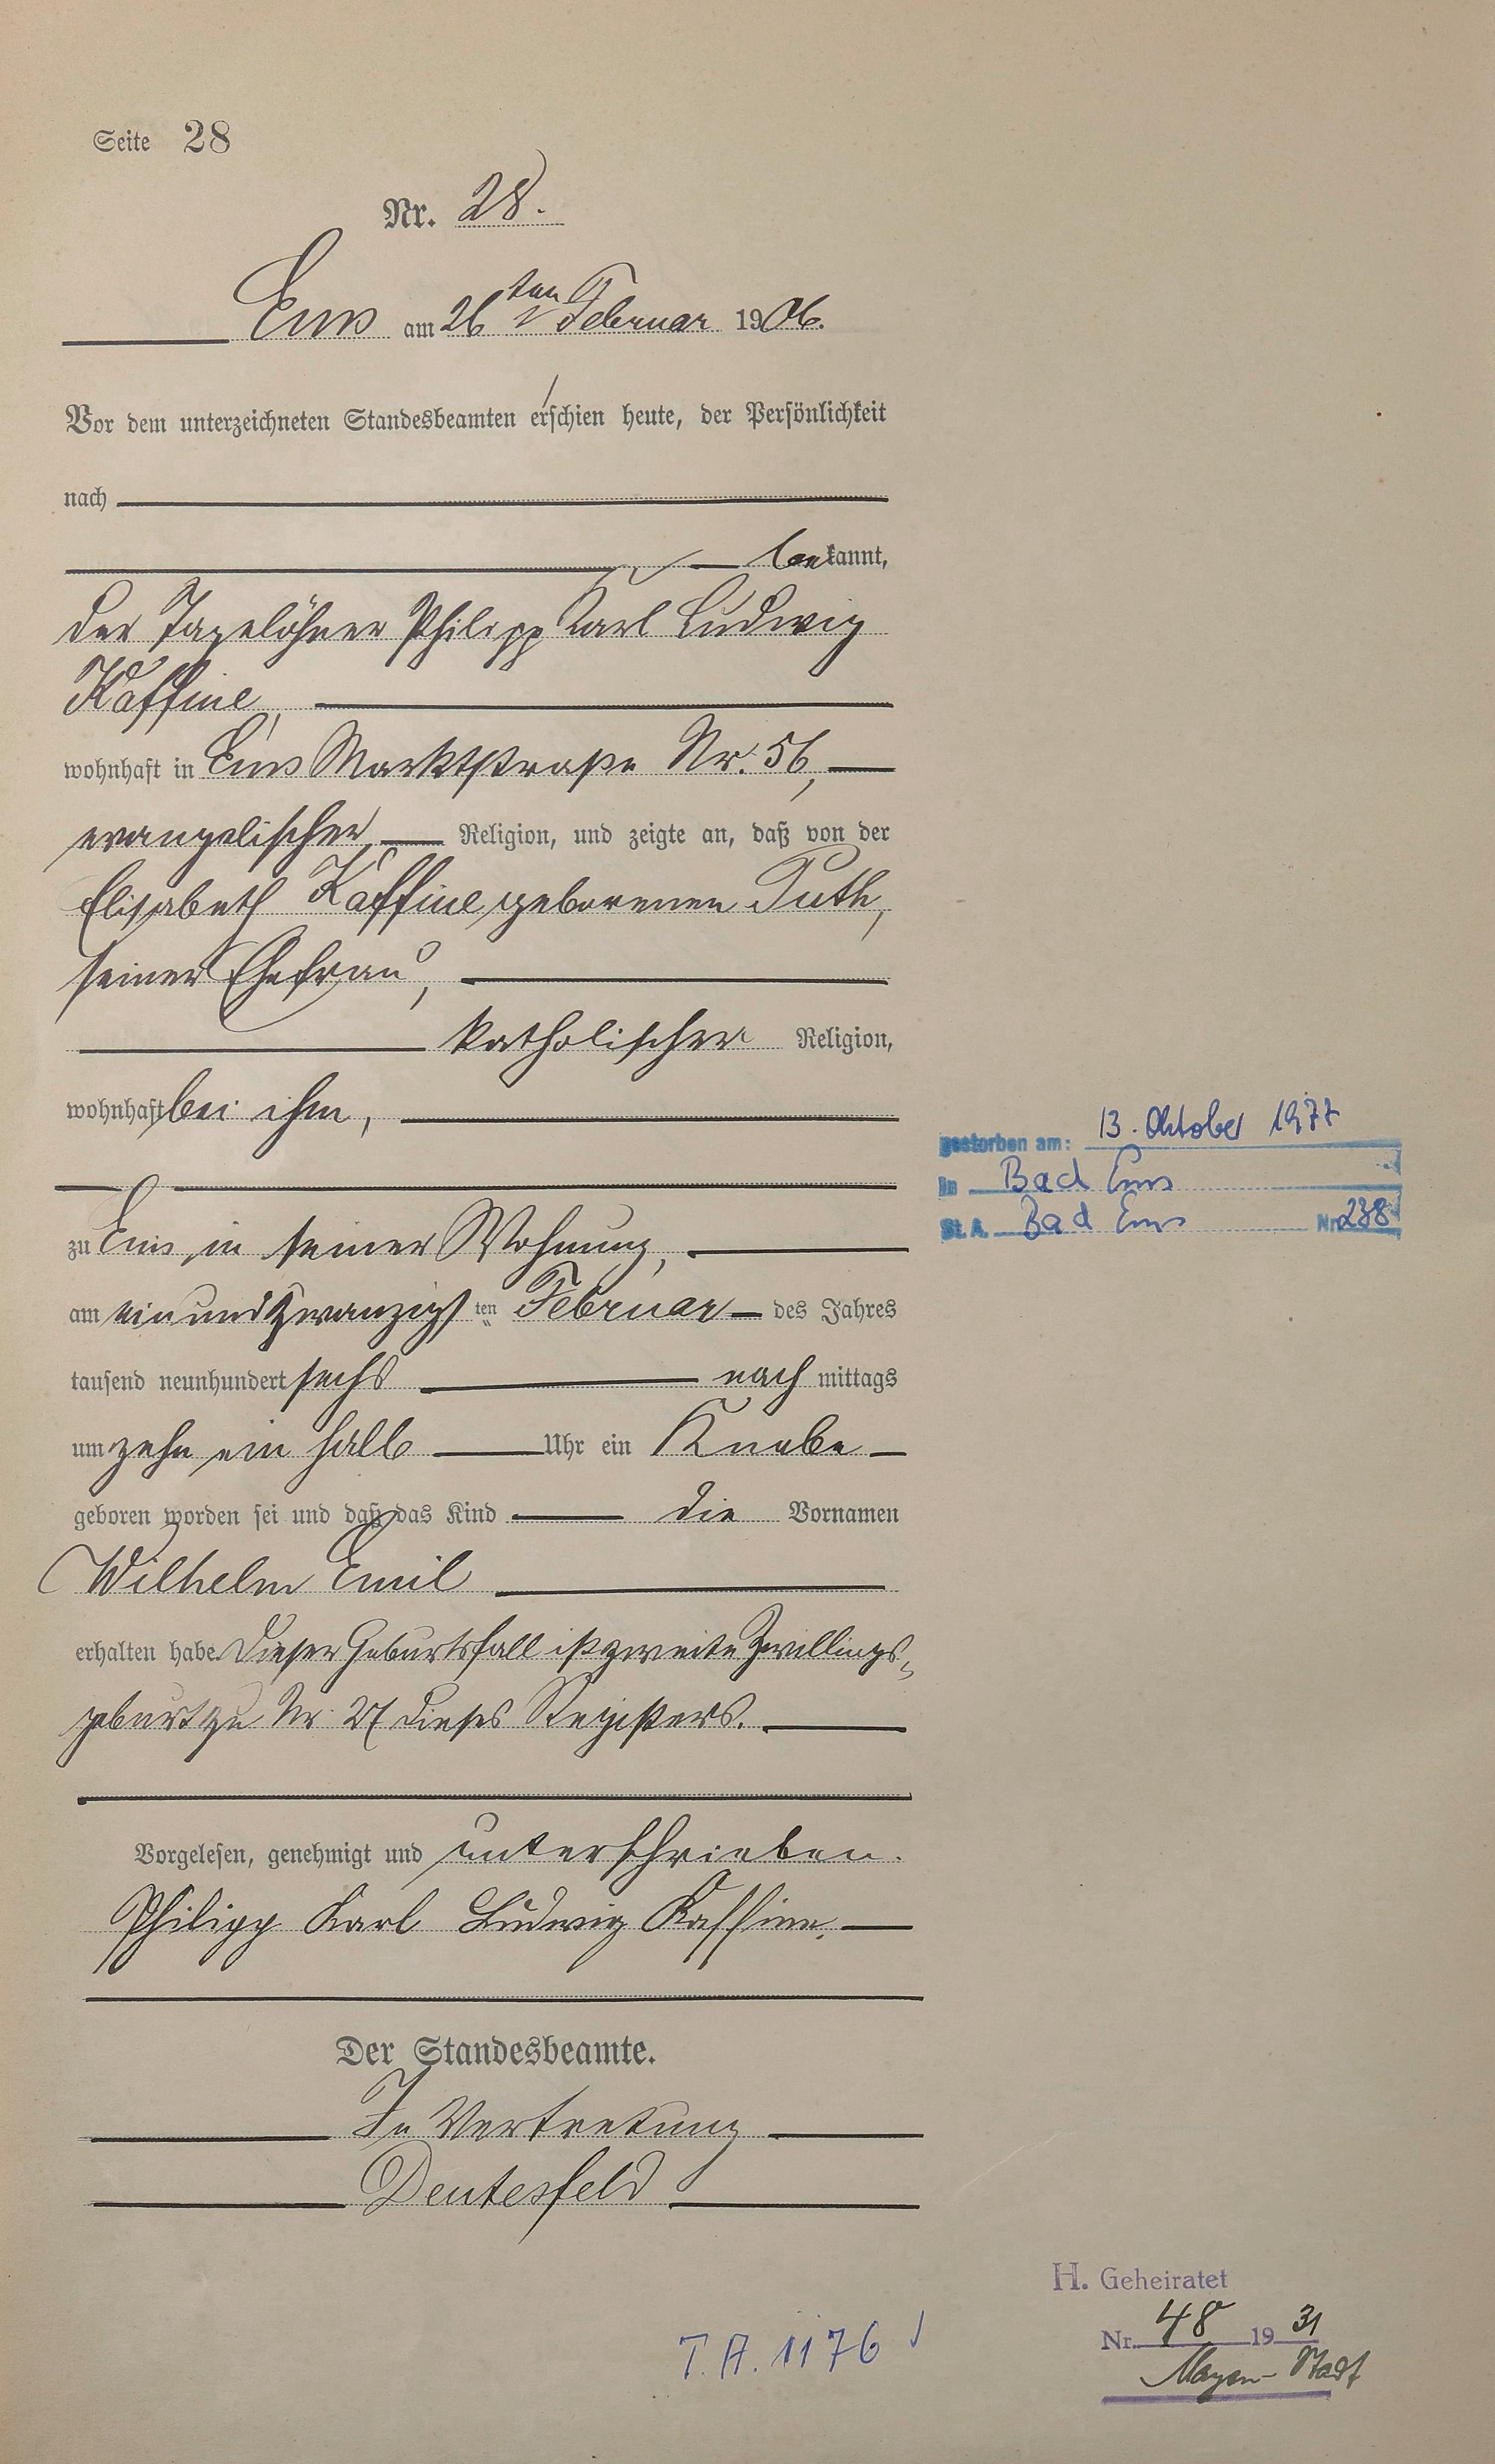 Seite 28
Nr. 28.
Ems am 26ten Februar 1906.
Vor dem unterzeichneten Standesbeamten erschien heute, der Persönlichkeit
nach
bekannt,
der Tagelöhner Philipp Karl Ludwig
Kaffine,
wohnhaft in Ems Marktstraße Nr. 56,
evangelischer Religion, und zeigte an, daß von der
Elisabeth Kaffine geborenen Puth,
seiner Ehefrau,
katholischer Religion,
wohnhaft bei ihm,
zu Ems in seiner Wohnung,
am einundzwanzigsten Februar des Jahres
tausend neunhundert sechs nachmittags
um zehn ein halb Uhr ein Knabe
geboren worden sei und daß das Kind die Vornamen
Wilhelm Emil
erhalten habe. Dieser Geburtsfall ist zweite Zwillings-
geburt zu Nr. 27 dieses Registers.
Vorgelesen, genehmigt und unterschrieben.
Philipp Karl Ludwig Kaffine.
Der Standesbeamte.
In Vertretung
Deutesfeld
gestorben am: 13. Oktober 1977
in Bad Ems
St. A. Bad Ems Nr. 238
H. Geheiratet
Nr. 48 1931
Mayen-Stadt
T.A. 1176